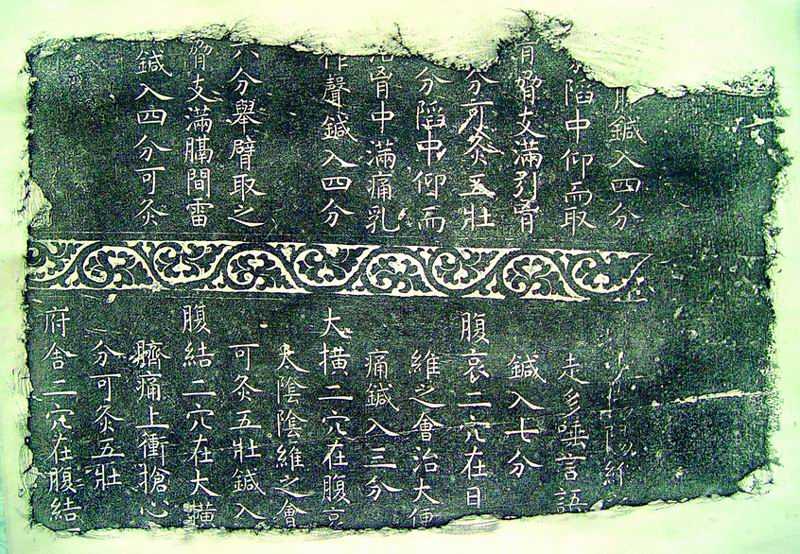 鍼入四分
陷中仰而取
脅支滿引胷
分可灸五壯
分陷中仰而
胷中滿痛乳
作聲鍼入四分
六分舉臂取之
脅支滿膈間雷
鍼入四分可灸
陽維
走多唾言語
鍼入七分
腹哀二穴在日
維之會治大便
痛鍼入三分
大橫二穴在腹哀
太陰陰維之會
可灸五壯鍼入
腹結二穴在大橫
臍痛上衝搶心
分可灸五壯
府舍二穴在腹結